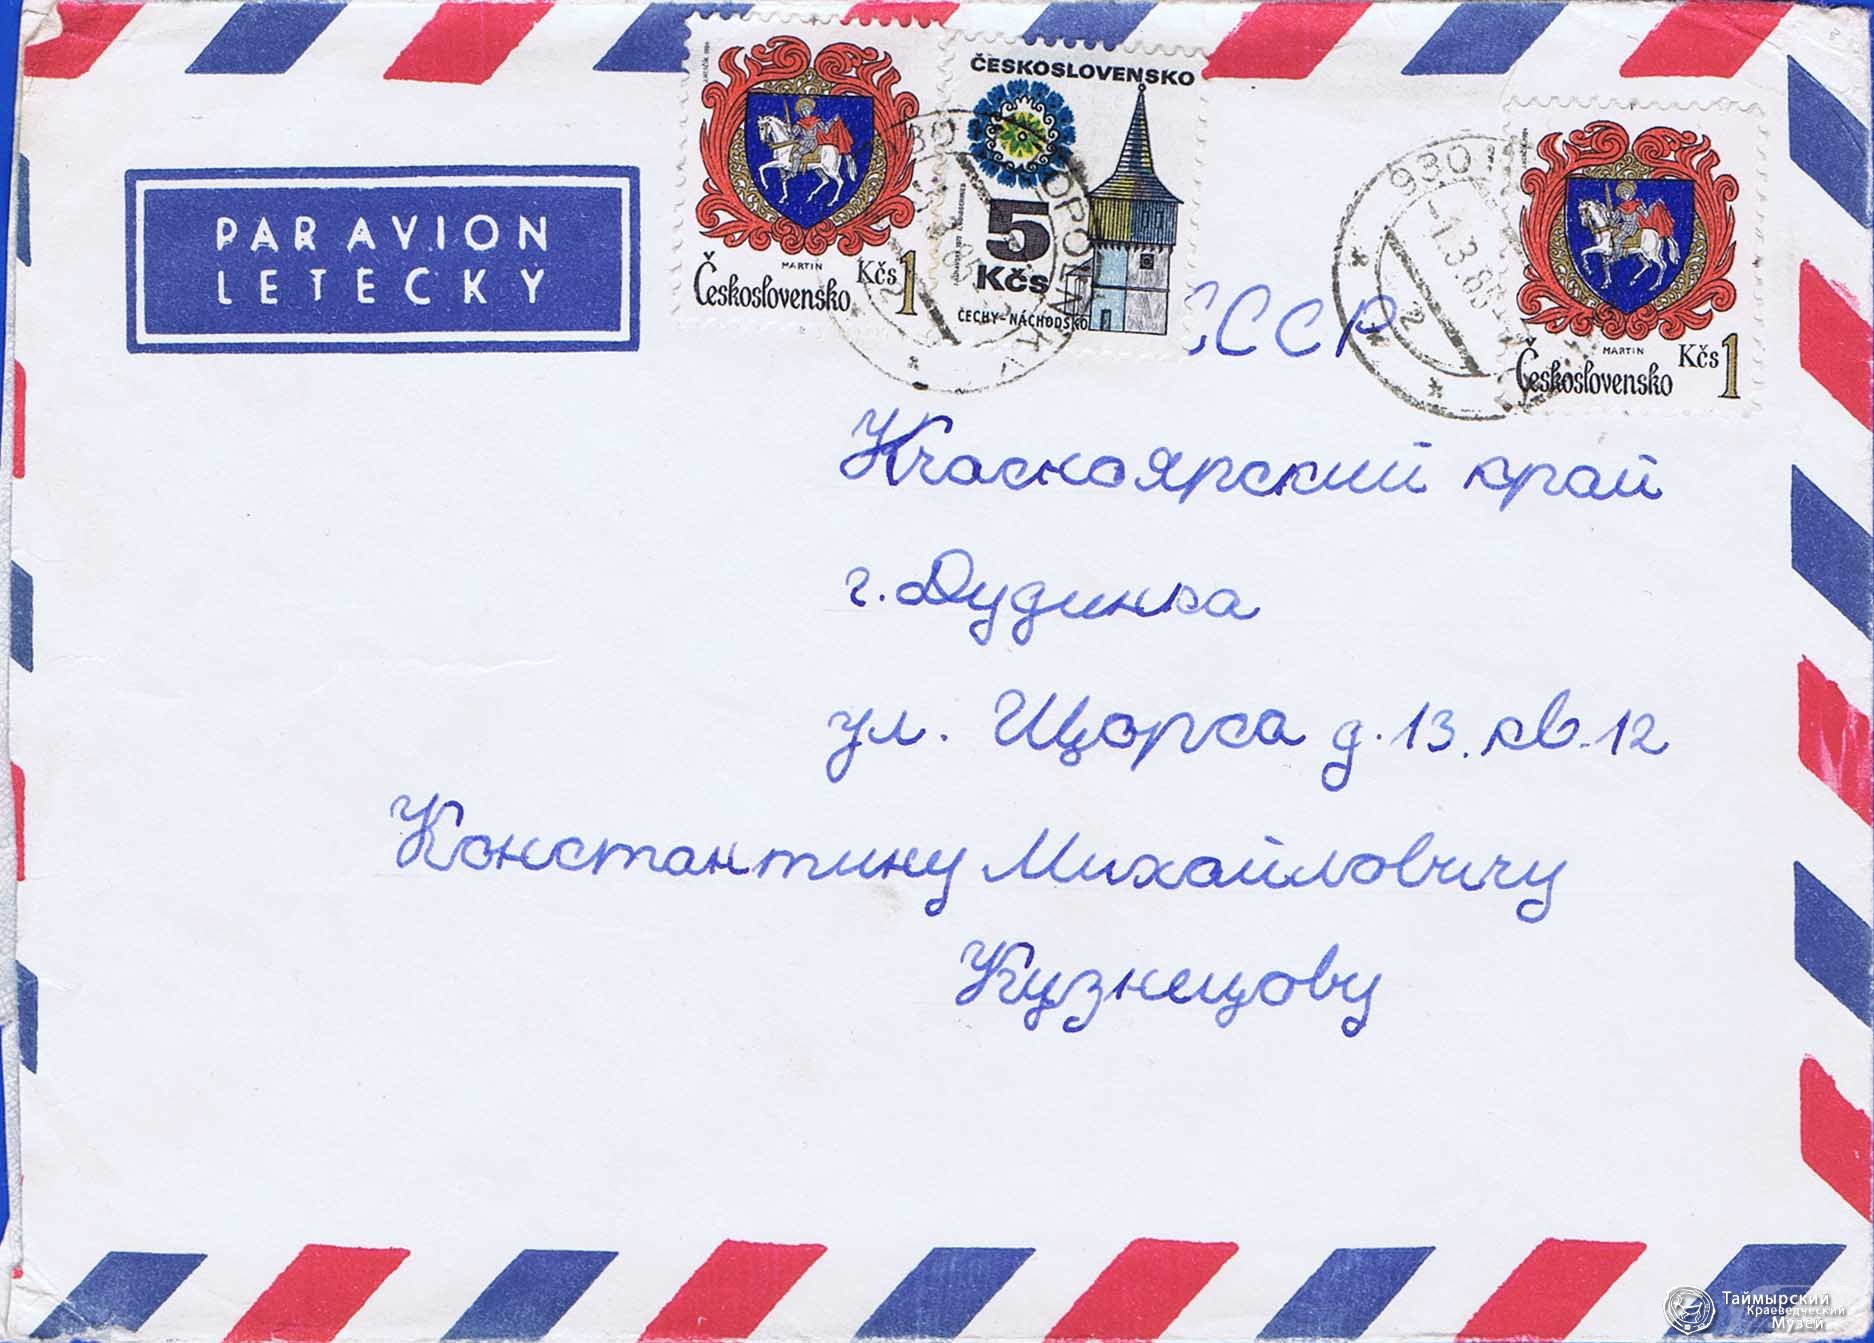 PAR AVION
LETECKY
MARTIN
Československo Kčs 1
ČESKOSLOVENSKO
5
Kčs
ČECHY-NÁCHODSKO
930
-1.3.85
2
MARTIN
Československo Kčs 1
СССР
Красноярский край
г. Дудинка
ул. Щорса д. 13. кв. 12
Константину Михайловичу
Кузнецову
Таймырский
Краеведческий
Музей